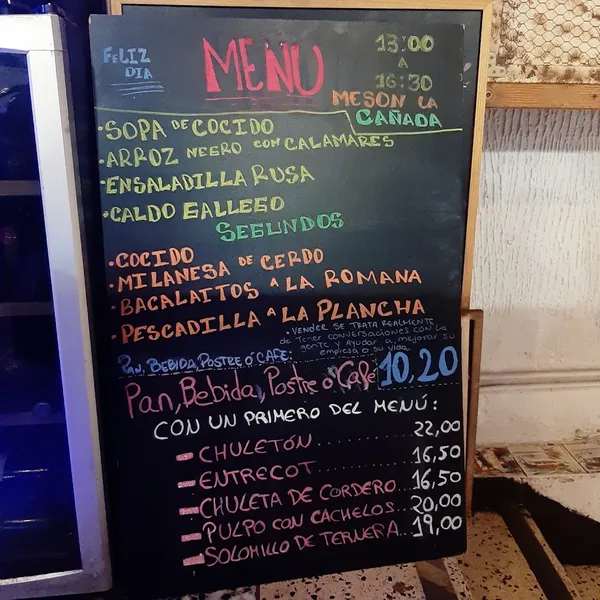 FELIZ DIA
MENU
13:00
A
16:30
MESON LA
CAÑADA
·SOPA DE COCIDO
·ARROZ NEGRO CON CALAMARES
·ENSALADILLA RUSA
·CALDO GALLEGO
SEGUNDOS
·COCIDO
·MILANESA DE CERDO
·BACALAITOS A LA ROMANA
·PESCADILLA A LA PLANCHA
·VENDER SE TRATA REALMENTE
de Tener conversaciones con la
gente y Ayudar a mejorar su
empresa o su vida
PAN, BEBIDA, POSTRE Ó CAFE:
Pan, Bebida, Postre o Café 10,20
CON UN PRIMERO DEL MENÚ:
- CHULETÓN.............. 22,00
- ENTRECOT............ 16,50
- CHULETA DE CORDERO... 16,50
- PULPO CON CACHELOS.. 20,00
- SOLOMILLO DE TERNERA... 19,00